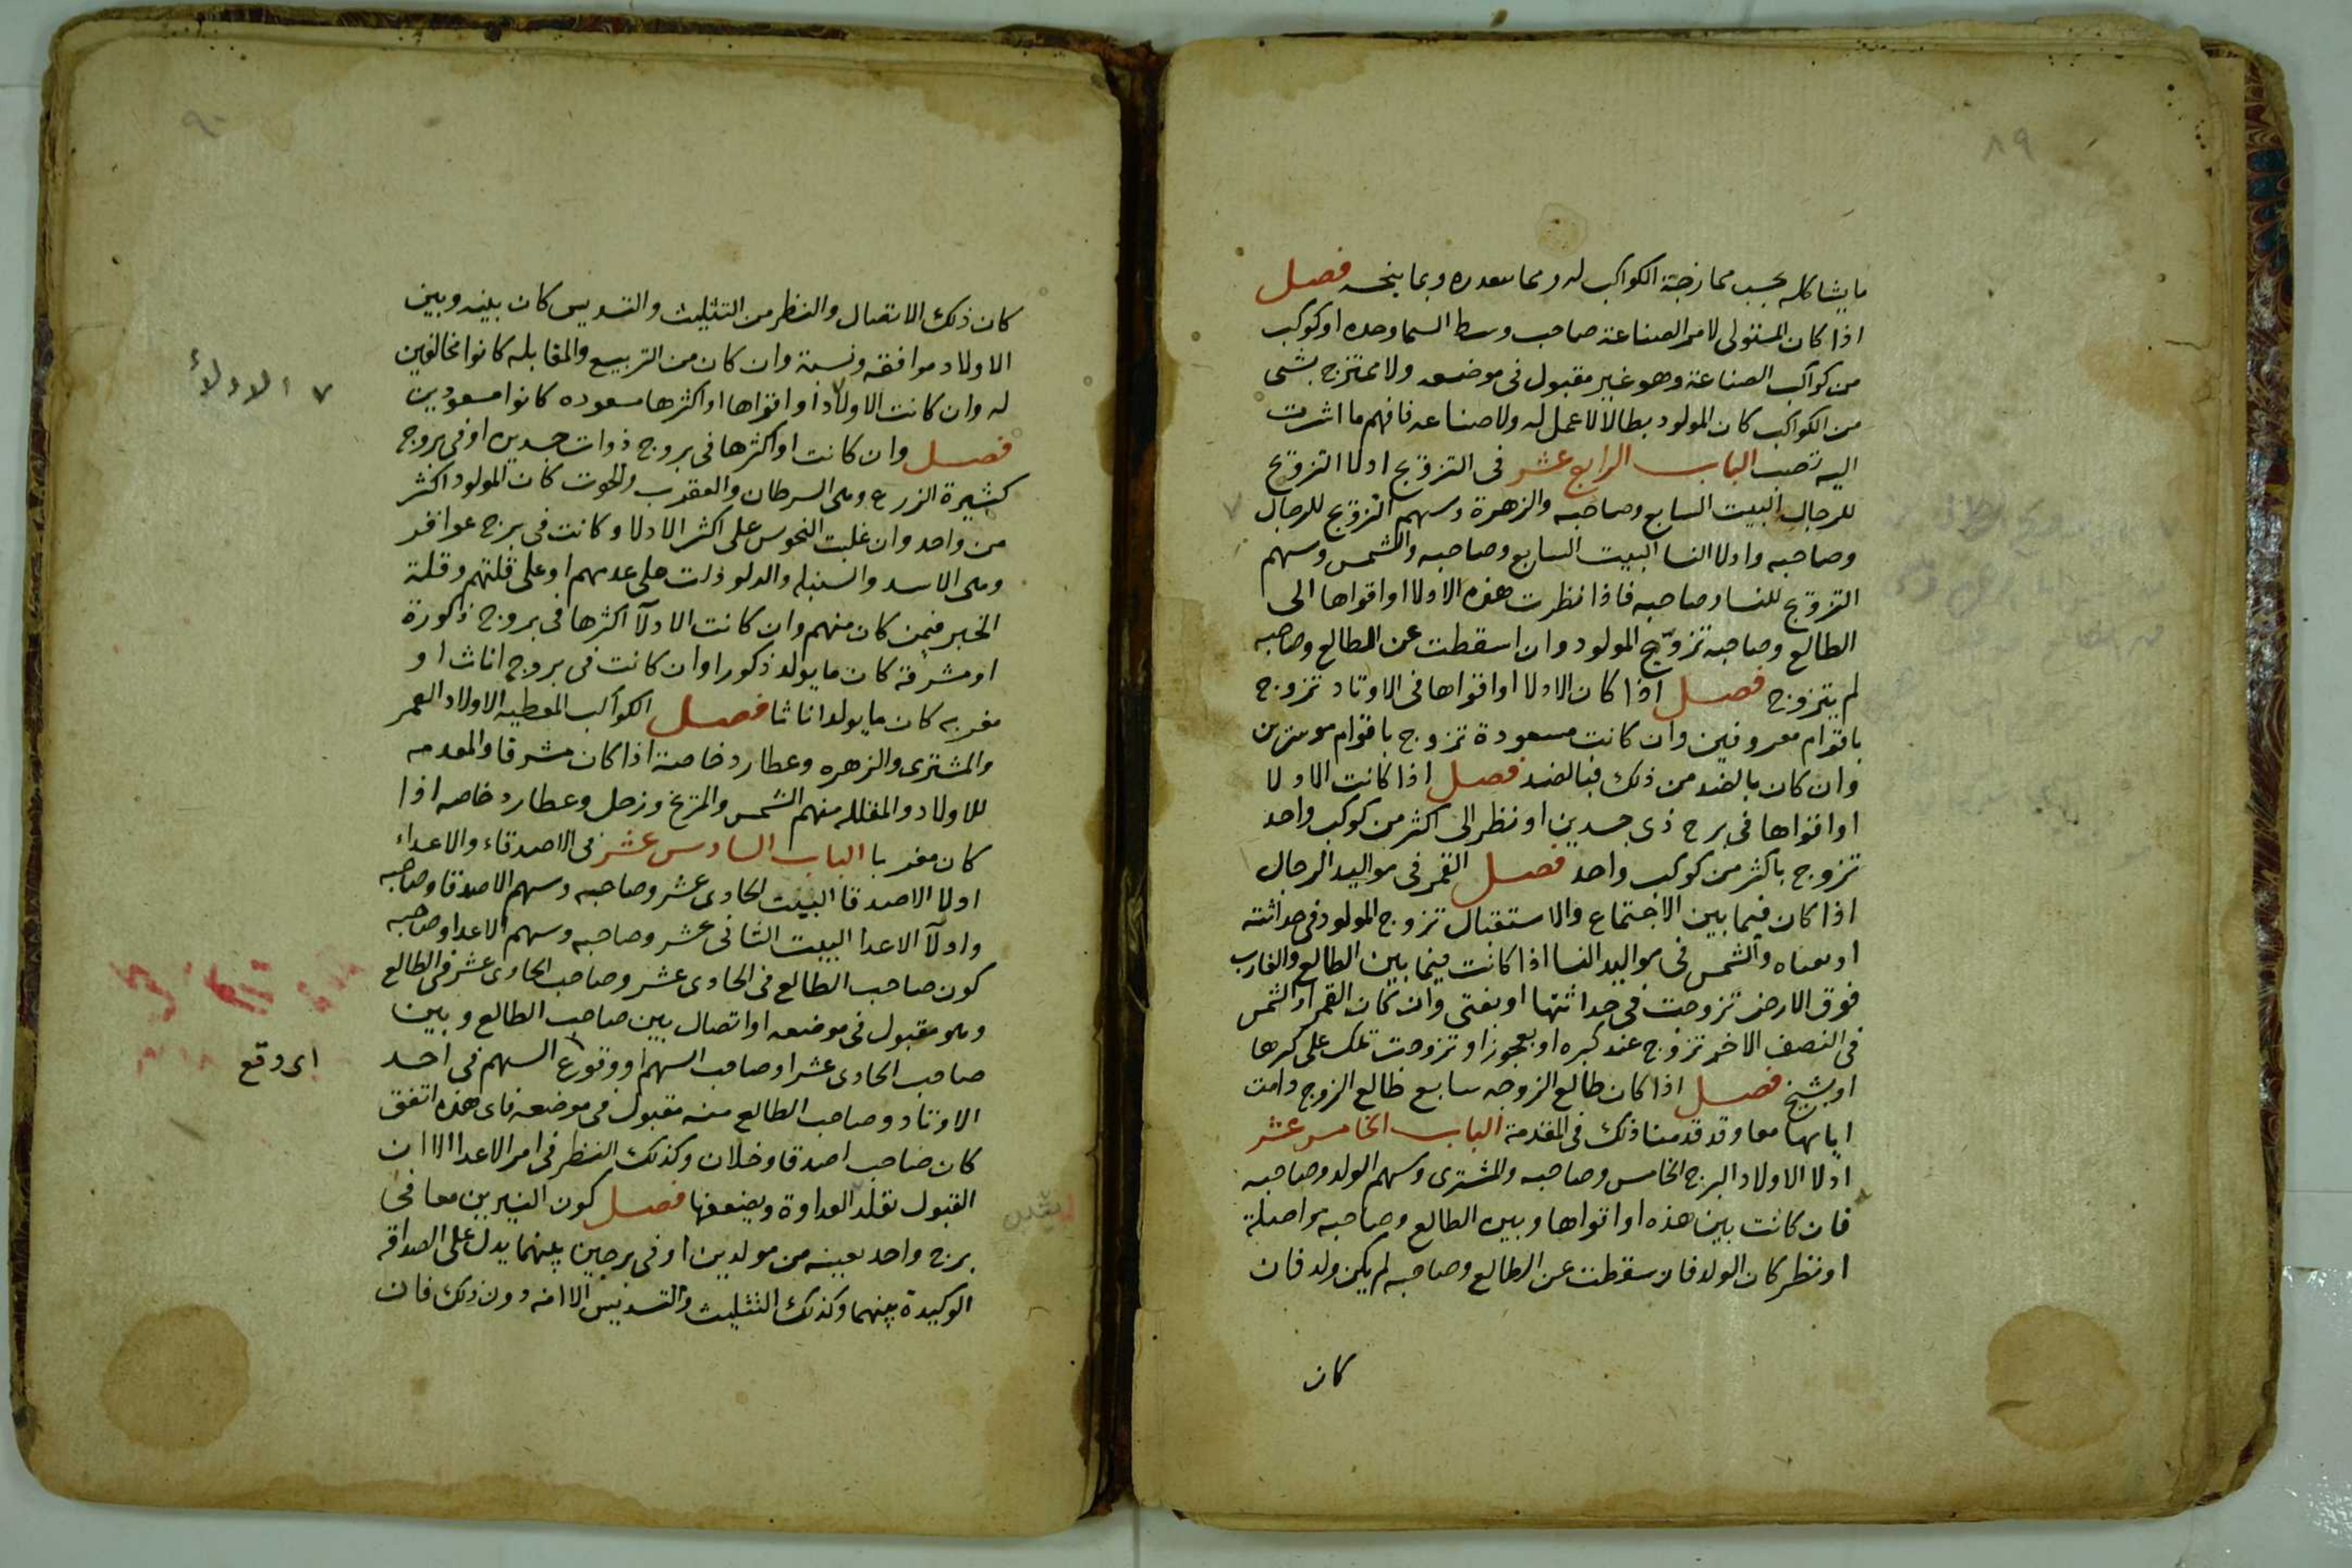 ٨٩
ما يشاكله بحسب ممازجة الكواكب له ومما يسعده وبما ينحسه فصل
اذا كان المستولى لامر الصناعة صاحب وسط السما وحده او كوكب
من كواكب الصناعة وهو غير مقبول فى موضعه ولا ممتزج بشى
من الكواكب كان المولود بطالا لا عمل له ولا صناعه فافهم ما اشرت
اليه تصب الباب الرابع عشر فى التزوج ادلا التزوج
للرجال البيت السابع وصاحبه والزهرة وسهم التزوج للرجال
وصاحبه وادلا النسا البيت السابع وصاحبه والشمس وسهم
التزوج للنسا وصاحبه فاذا نظرت هذه الادلا او اقواها الى
الطالع وصاحبه تزوج المولود وان اسقطت عن الطالع وصاحبه
لم يتزوج فصل اذا كان الادلا او اقواها فى الاوتاد تزوج
باقوام معروفين وان كانت مسعودة تزوج باقوام موسرين
وان كان بالضد من ذلك فبالضد فصل اذا كانت الادلا
او اقواها فى برج ذى جسدين او نظر الى اكثر من كوكب واحد
تزوج باكثر من كوكب واحد فصل القمر فى مواليد الرجال
اذا كان فيما بين الاجتماع والاستقبال تزوج المولود فى حداثته
او بفتاه والشمس فى مواليد النسا اذا كانت فيما بين الطالع والغارب
فوق الارض تزوجت فى حداثتها او بفتى وان كان القمر او الشمس
فى النصف الاخر تزوج عند كبره او بعجوز او تزوجت تلك على كبرها
او بشيخ فصل اذا كان طالع الزوجه سابع طالع الزوج دامت
ايامهما معا وقد قدمنا ذلك فى المقدمة الباب الخامس عشر
ادلا الاولاد البرج الخامس وصاحبه والمشترى وسهم الولد وصاحبه
فان كانت بين هذه او اقواها وبين الطالع وصاحبه مواصلة
او نظر كان الولد فان سقطت عن الطالع وصاحبه لم يكن ولد فان
كان
٩٠
كان ذلك الاتصال والنظر من التثليث والتسديس كان بينه وبين
الاولاد موافقه ونسبة وان كان من التربيع والمقابله كانوا مخالفين
له وان كانت الاولاد او اقواها او اكثرها مسعوده كانوا مسعودين
٧ الادلاء
فصل وان كانت او اكثرها فى بروج ذوات جسدين او فى بروج
كثيرة الزرع وهى السرطان والعقرب والحوت كان للمولود اكثر
من واحد وان غلبت النحوس على اكثر الادلا وكانت فى برج عواقر
وهى الاسد والسنبله والدلو دلت على عدمهم او على قلتهم وقلة
الخير فيمن كان منهم وان كانت الادلآ اكثرها فى بروج ذكورة
او مشرقة كان ما يولد ذكورا وان كانت فى بروج اناث او
مغربه كان ما يولد اناثا فصل الكواكب المعطيه الاولاد القمر
والمشترى والزهره وعطارد خاصة اذا كان مشرقا والمعدمه
للاولاد والمقلله منهم الشمس والمريخ وزحل وعطارد خاصه اذا
كان مغربا الباب السادس عشر فى الاصدقاء والاعداء
ادلا الاصدقا البيت الحادى عشر وصاحبه وسهم الاصدقا وصاحبه
وادلآ الاعدا البيت الثانى عشر وصاحبه وسهم الاعدا وصاحبه
كون صاحب الطالع فى الحادى عشر وصاحب الحادى عشر فى الطالع
وهو مقبول فى موضعه او اتصال بين صاحب الطالع وبين
صاحب الحادى عشر او صاحب السهم او وقوع السهم فى احد
اى وقع
الاوتاد وصاحب الطالع منه مقبول فى موضعه فاى هذه اتفق
كان صاحب اصدقا وخلان وكذلك النظر فى امر الاعدا الا ان
القبول يقلد العداوة ويضعفها فصل كون النيرين معا فى
برج واحد بعينه من مولدين او فى برجين بينهما يدل على الصداقه
الوكيدة بينهما وكذلك التثليث والتسديس الا انه دون ذلك فان